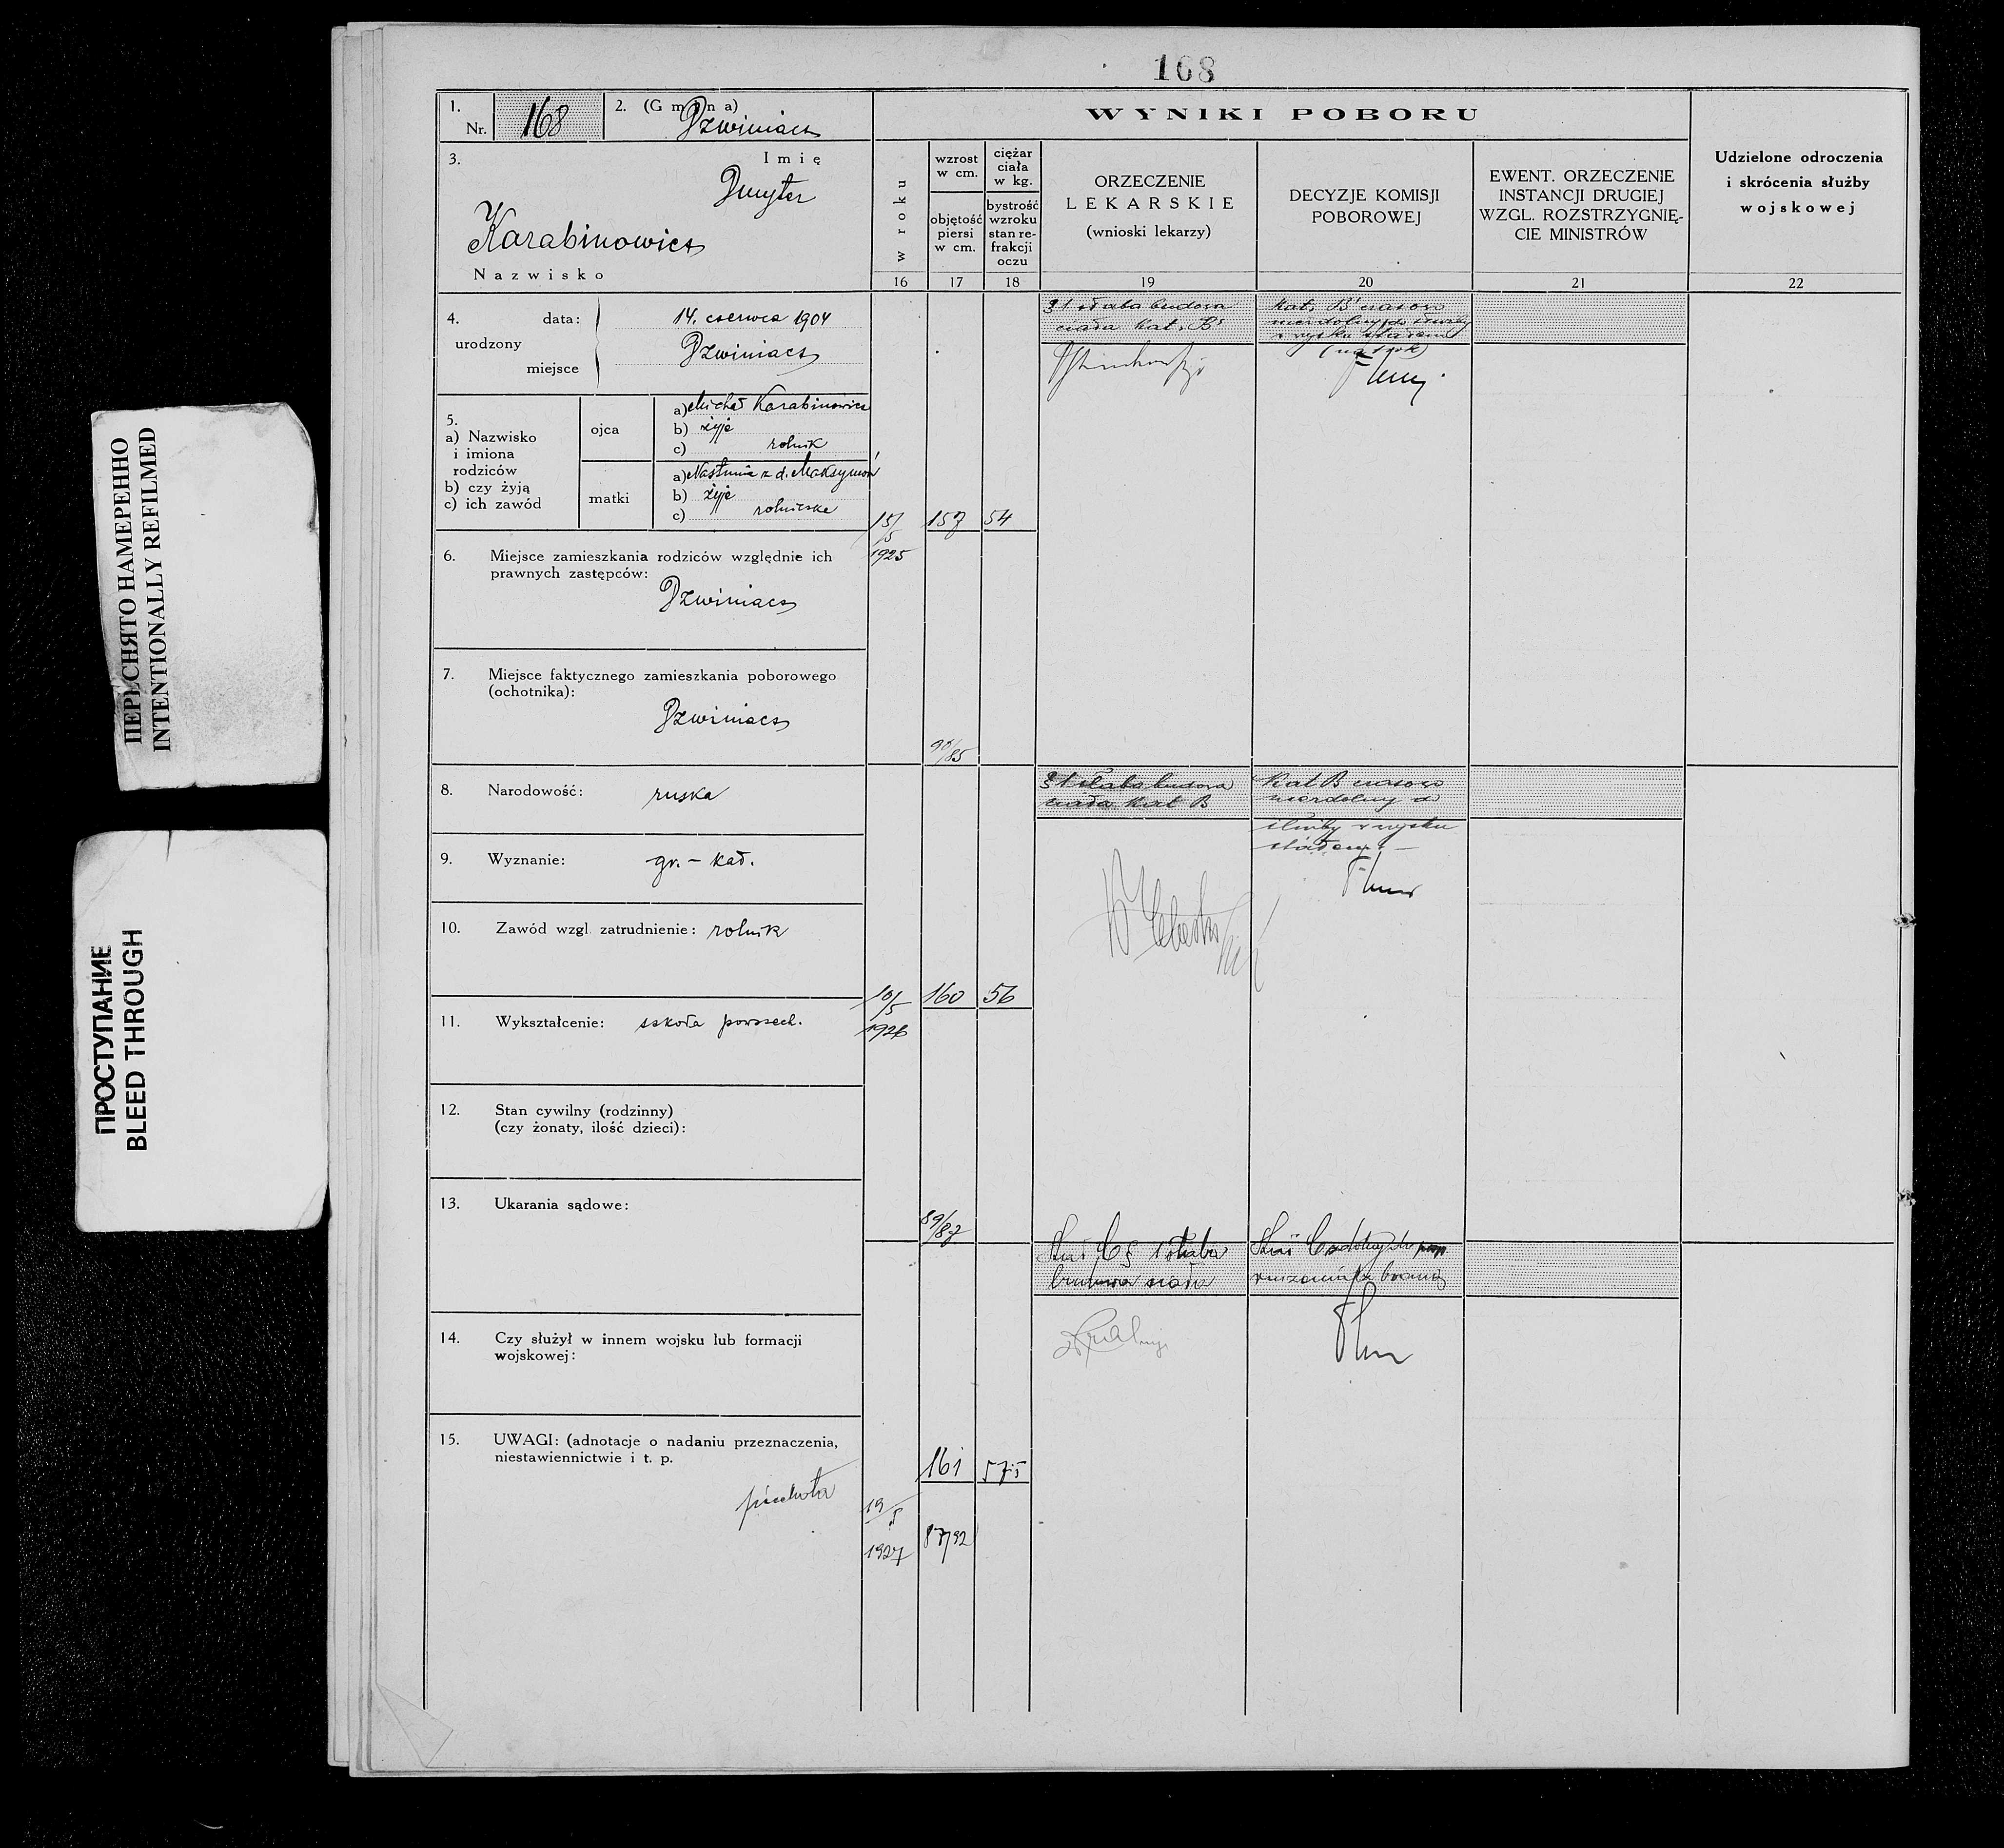 168
1.
Nr. 168
2. (Gmina)
Dzwiniacz
3.
Imię
Dmyter
Karabinowicz
Nazwisko
WYNIKI POBORU
w roku
wzrost
w cm.
objętość
piersi
w cm.
ciężar
ciała
w kg.
bystrość
wzroku
stan re-
frakcji
oczu
ORZECZENIE
LEKARSKIE
(wnioski lekarzy)
DECYZJE KOMISJI
POBOROWEJ
EWENT. ORZECZENIE
INSTANCJI DRUGIEJ
WZGL. ROZSTRZYGNIĘ-
CIE MINISTRÓW
Udzielone odroczenia
i skrócenia służby
wojskowej
16 17 18 19 20 21 22
4. data: 14. czerwca 1904
urodzony
miejsce Dzwiniacz
5.
a) Nazwisko
i imiona
rodziców
b) czy żyją
c) ich zawód
ojca
a) Michał Karabinowicz
b) żyje
c) rolnik
matki
a) z d. Maksymów
b) żyje
c) rolniczka
6. Miejsce zamieszkania rodziców względnie ich
prawnych zastępców:
Dzwiniacz
7. Miejsce faktycznego zamieszkania poborowego
(ochotnika):
Dzwiniacz
8. Narodowość: ruska
9. Wyznanie: gr.-kat.
10. Zawód wzgl. zatrudnienie: rolnik
11. Wykształcenie: szkoła powszech.
12. Stan cywilny (rodzinny)
(czy żonaty, ilość dzieci):
13. Ukarania sądowe:
14. Czy służył w innem wojsku lub formacji
wojskowej:
15. UWAGI: (adnotacje o nadaniu przeznaczenia,
niestawiennictwie i t. p.
piechota
15/5
1925
157 54
90/85
§ 1 słaba budowa
ciała kat. B
kat. B czasowo
niezdolny do służby
w wojsku stałem
(na 1 rok)
10/5
1926
160 56
89/87
§ 1 słaba budowa
ciała kat B
Kat B czasowo
niezdolny do
służby w wojsku
stałem
19/5
1927
161 57.5
87/92
C § 1 słaba
budowa ciała
C zdolny do posp.
ruszenia z bronią
ПЕРЕСНЯТО НАМЕРЕННО
INTENTIONALLY REFILMED
ПРОСТУПАНИЕ
BLEED THROUGH